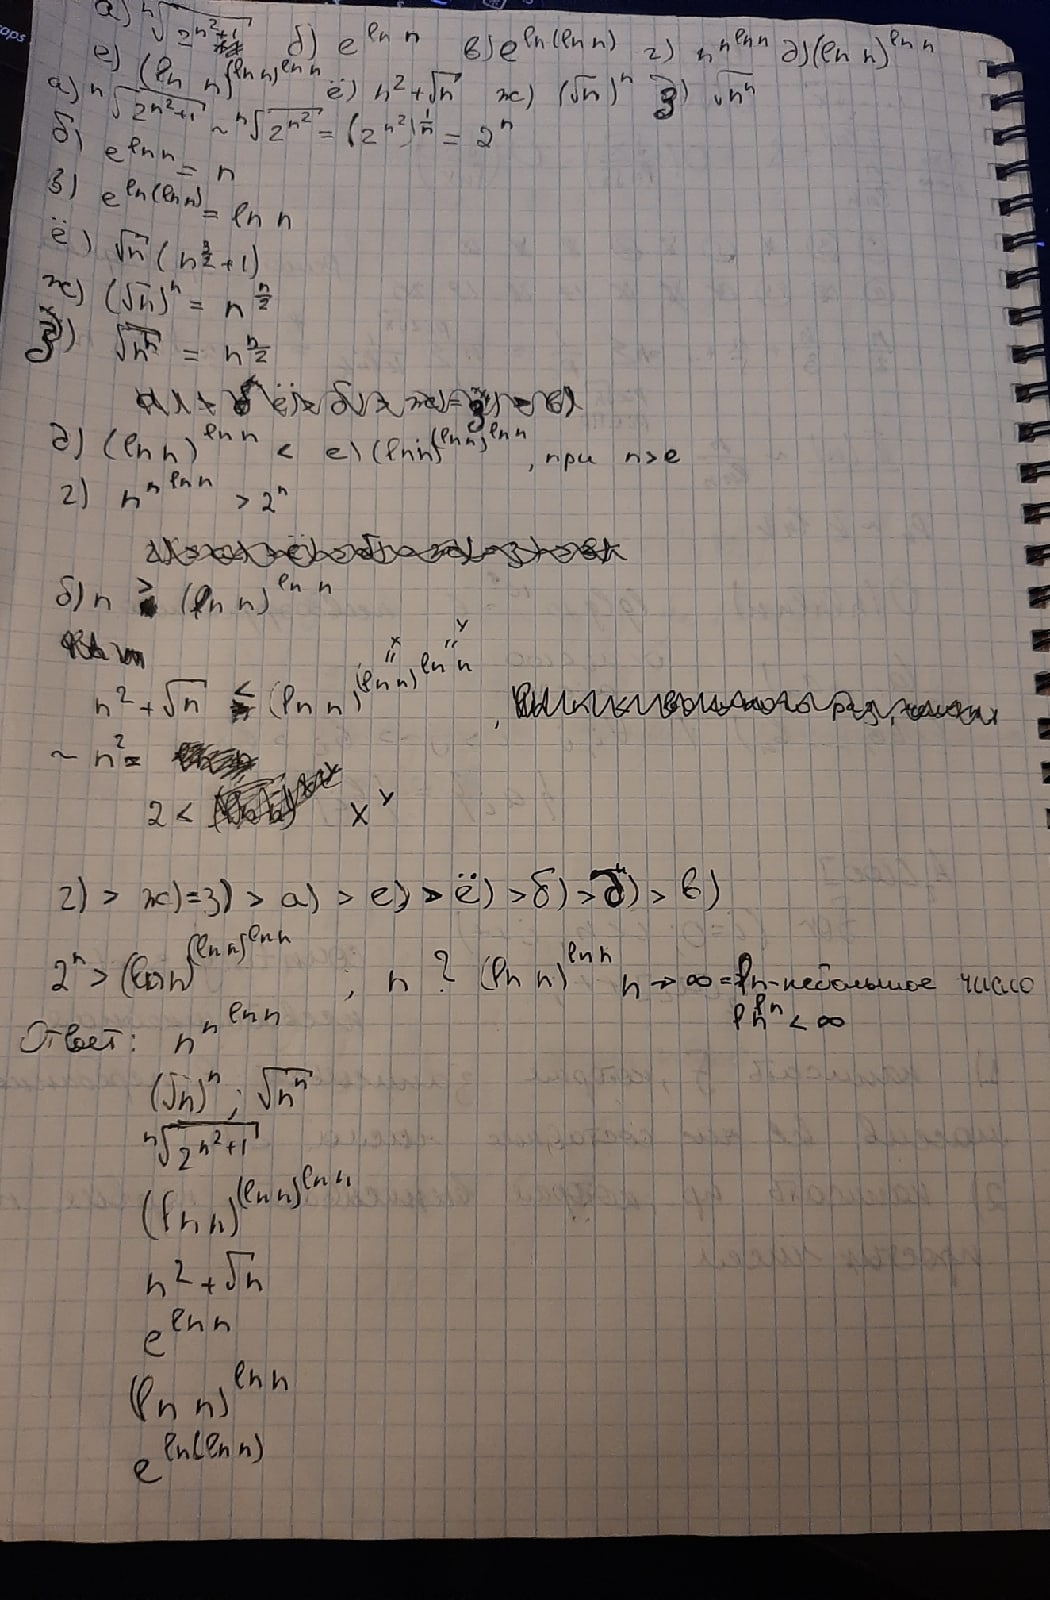 а) ⁿ√(2^(n²+1)) б) e^(ln n) в) e^(ln(ln n)) г) n^(n^(ln n)) д) (ln n)^(ln n)
е) (ln n)^((ln n)^(ln n)) ё) n²+√n ж) (√n)ⁿ з) √(nⁿ)
а) ⁿ√(2^(n²+1)) ~ ⁿ√(2^(n²)) = (2^(n²))^(1/n) = 2ⁿ
б) e^(ln n) = n
в) e^(ln(ln n)) = ln n
ё) √n (n^(3/2)+1)
ж) (√n)ⁿ = n^(n/2)
з) √(nⁿ) = n^(n/2)
д) (ln n)^(ln n) < е) (ln n)^((ln n)^(ln n)), при n>e
г) n^(n^(ln n)) > 2ⁿ
б) n > (ln n)^(ln n)
n²+√n < (ln n)^((ln n)^(ln n)),
x y
~ n² =
2 < x^y
г) > ж)=з) > а) > е) > ё) > б) > д) > в)
2ⁿ > (ln n)^((ln n)^(ln n)); n ? (ln n)^(ln n) n→∞ = ln - небольшое число
ln^(ln n) < ∞
Ответ: n^(n^(ln n))
(√n)ⁿ; √(nⁿ)
ⁿ√(2^(n²+1))
(ln n)^((ln n)^(ln n))
n²+√n
e^(ln n)
(ln n)^(ln n)
e^(ln(ln n))